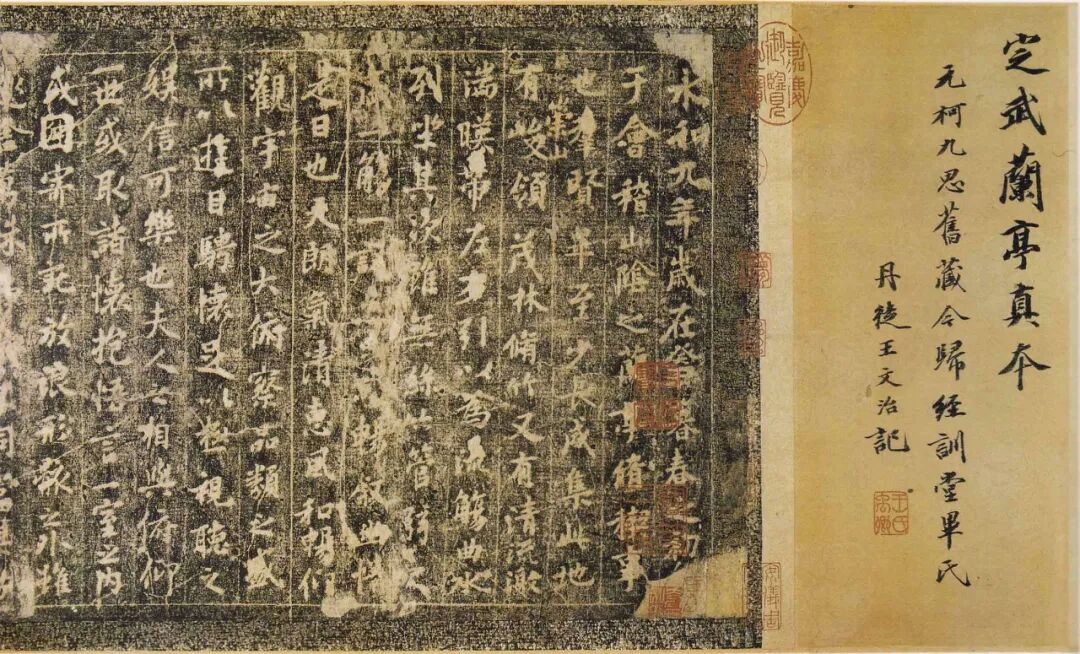 定武蘭亭真本
元柯九思舊藏今歸經訓堂畢氏
丹徒王文治記
王氏禹卿
嘉慶御覽
永和九年歲在癸丑暮春之初
于會稽山陰之蘭亭脩稧事
也羣賢畢至少長咸集此地
有崇山峻領茂林脩竹又有清流激
湍暎帶左右引以為流觴曲水
列坐其次雖無絲竹管弦之
盛一觴一詠亦足以暢敘幽情
是日也天朗氣清惠風和暢仰
觀宇宙之大俯察品類之盛
所以遊目騁懷足以極視聽之
娛信可樂也夫人之相與俯仰
一世或取諸懷抱悟言一室之內
或因寄所託放浪形骸之外雖